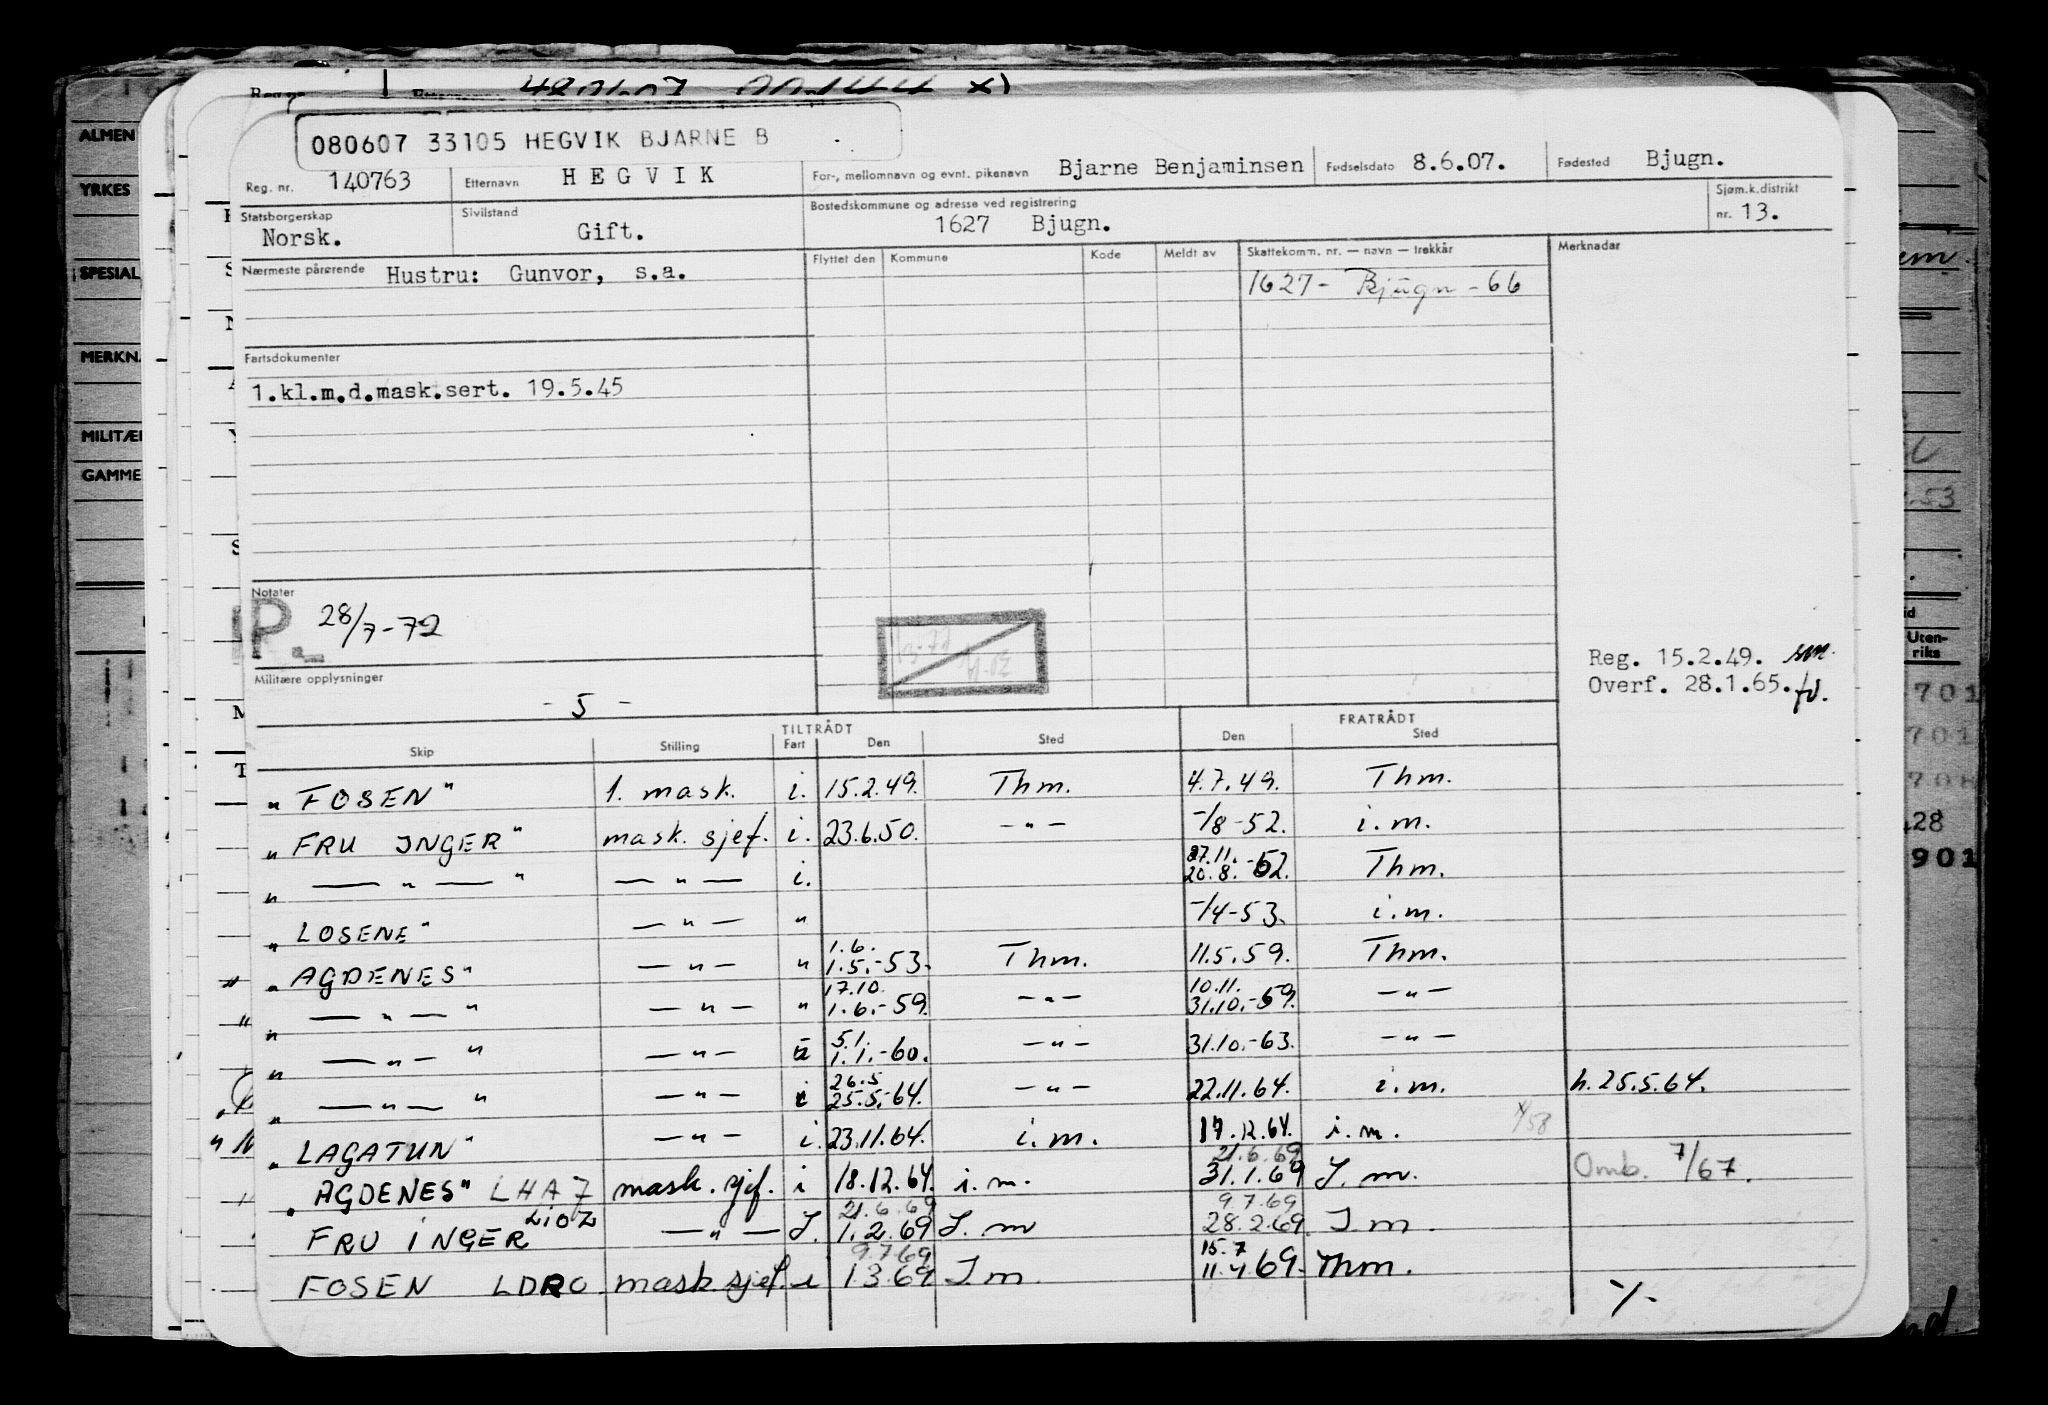 080607 33105 HEGVIK BJARNE B
Reg. nr. 140763 Etternavn HEGVIK For-, mellomnavn og evnt. pikenavn Bjarne Benjaminsen Fødselsdato 8.6.07. Fødested Bjugn.
Statsborgerskap Norsk. Sivilstand Gift. Bostedskommune og adresse ved registrering 1627 Bjugn. Sjøm.k.distrikt nr. 13.
Nærmeste pårørende Hustru: Gunvor, s.a. Flyttet den Kommune Kode Meldt av Skattekomm. nr. — navn — trekkår Merknadar
1627 - Bjugn - 66
Fartsdokumenter
1.kl.m.d.mask.sert. 19.5.45
Notater
P. 28/7-72
Reg. 15.2.49.
Overf. 28.1.65.
Militære opplysninger
- 5 -
TILTRÅDT FRATRÅDT
Skip Stilling Fart Den Sted Den Sted
"FOSEN" 1. mask. i. 15.2.49. Thm. 4.7.49. Thm.
"FRU INGER" mask. sjef. i. 23.6.50. —"— -/8-52. i.m.
27.11.
" — " — " — " — i. 20.8.-52. Thm.
"LOSENE" — " — " -/4-53. i.m.
1.6.
"AGDENES" — " — " 1.5.-53. Thm. 11.5.59. Thm.
17.10. 10.11.
" — " — " — " — " 1.6.-59. —"— 31.10.-59. —"—
5.1.
" — " — " — " — 1.1.-60. —"— 31.10.-63. —"—
26.5
" — " — " — " — i 25.5.-64. —"— 22.11.64. i.m. h.25.5.64.
"LAGATUN" — " — i. 23.11.64. i.m. 17.12.64. i.m.
21.6.69
"AGDENES" LHAZ mask. sjef. i 18.12.64. i.m. 31.1.69 I.m. Omb. 7/67.
21.6.69 9.7.69
FRU INGER LIOZ — " — I. 1.2.69 I.m 28.2.69 I m.
9.7.69 15.7
FOSEN LDRO mask.sjef. i 1.3.69 I m. 11.4.69. Thm.
-/-
ALMEN
YRKES
SPESIAL
MERKN
MILITÆ
GAMME
Uten-
riks
701
701
708
28
901